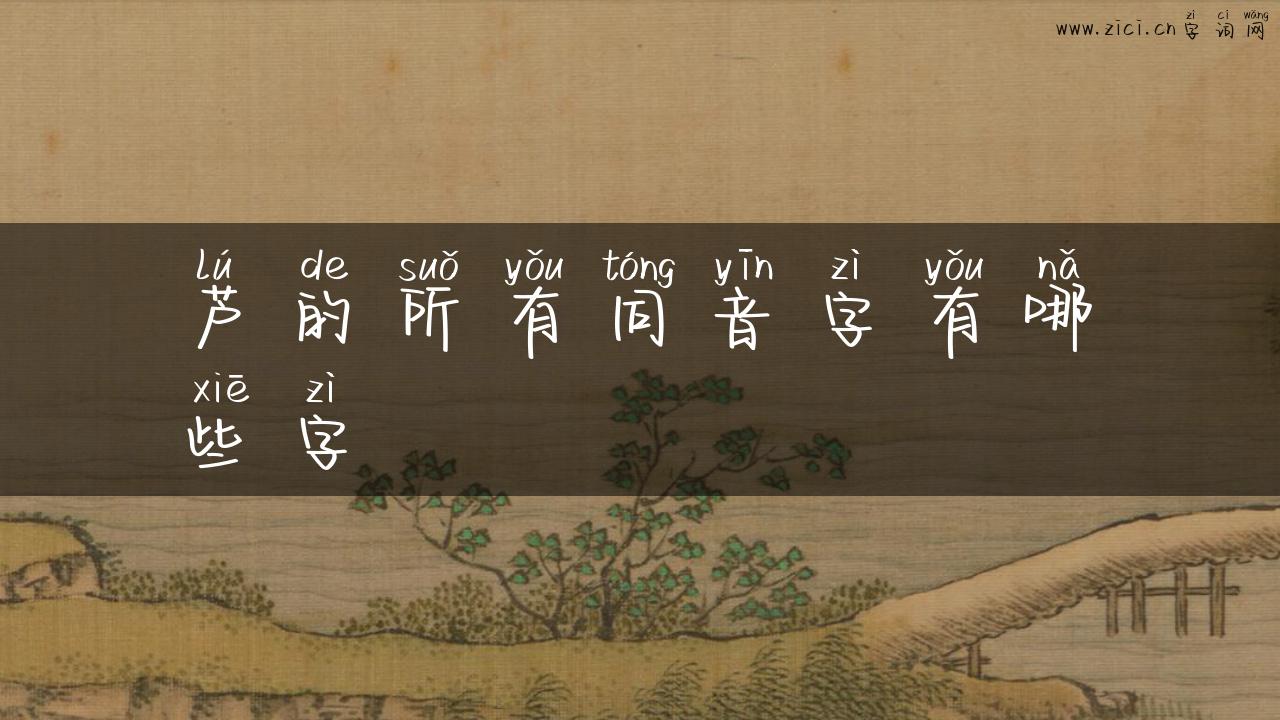 zì cí wǎng
www.zici.cn 字词网
lú de suǒ yǒu tóng yīn zì yǒu nǎ
芦的所有同音字有哪
xiē zì
些字